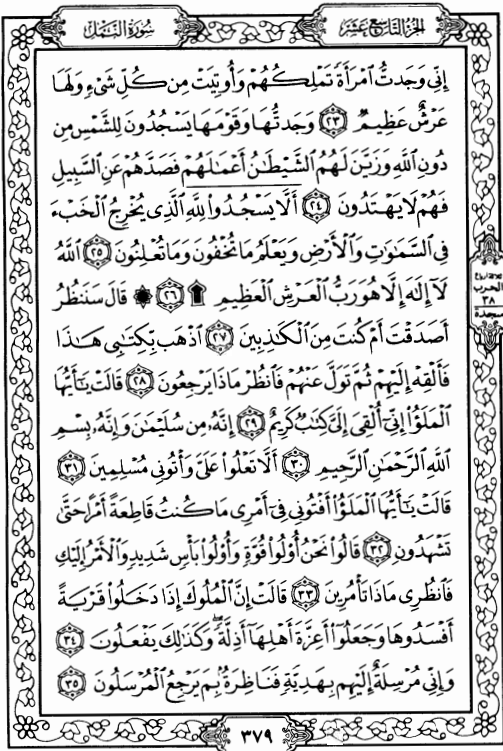 الجزء التاسع عشر
سورة النمل
إِنِّي وَجَدتُّ ٱمْرَأَةً تَمْلِكُهُمْ وَأُوتِيَتْ مِن كُلِّ شَيْءٍ وَلَهَا
عَرْشٌ عَظِيمٌ ٢٣ وَجَدتُّهَا وَقَوْمَهَا يَسْجُدُونَ لِلشَّمْسِ مِن
دُونِ ٱللَّهِ وَزَيَّنَ لَهُمُ ٱلشَّيْطَٰنُ أَعْمَٰلَهُمْ فَصَدَّهُمْ عَنِ ٱلسَّبِيلِ
فَهُمْ لَا يَهْتَدُونَ ٢٤ أَلَّا يَسْجُدُوا۟ لِلَّهِ ٱلَّذِي يُخْرِجُ ٱلْخَبْءَ
فِي ٱلسَّمَٰوَٰتِ وَٱلْأَرْضِ وَيَعْلَمُ مَا تُخْفُونَ وَمَا تُعْلِنُونَ ٢٥ ٱللَّهُ
لَآ إِلَٰهَ إِلَّا هُوَ رَبُّ ٱلْعَرْشِ ٱلْعَظِيمِ ۩ ٢٦ ۞ قَالَ سَنَنظُرُ
أَصَدَقْتَ أَمْ كُنتَ مِنَ ٱلْكَٰذِبِينَ ٢٧ ٱذْهَب بِّكِتَٰبِي هَٰذَا
فَأَلْقِهْ إِلَيْهِمْ ثُمَّ تَوَلَّ عَنْهُمْ فَٱنظُرْ مَاذَا يَرْجِعُونَ ٢٨ قَالَتْ يَٰٓأَيُّهَا
ٱلْمَلَؤُا۟ إِنِّيٓ أُلْقِيَ إِلَيَّ كِتَٰبٌ كَرِيمٌ ٢٩ إِنَّهُۥ مِن سُلَيْمَٰنَ وَإِنَّهُۥ بِسْمِ
ٱللَّهِ ٱلرَّحْمَٰنِ ٱلرَّحِيمِ ٣٠ أَلَّا تَعْلُوا۟ عَلَيَّ وَأْتُونِي مُسْلِمِينَ ٣١
قَالَتْ يَٰٓأَيُّهَا ٱلْمَلَؤُا۟ أَفْتُونِي فِيٓ أَمْرِي مَا كُنتُ قَاطِعَةً أَمْرًا حَتَّىٰ
تَشْهَدُونِ ٣٢ قَالُوا۟ نَحْنُ أُو۟لُوا۟ قُوَّةٍ وَأُو۟لُوا۟ بَأْسٍ شَدِيدٍ وَٱلْأَمْرُ إِلَيْكِ
فَٱنظُرِي مَاذَا تَأْمُرِينَ ٣٣ قَالَتْ إِنَّ ٱلْمُلُوكَ إِذَا دَخَلُوا۟ قَرْيَةً
أَفْسَدُوهَا وَجَعَلُوٓا۟ أَعِزَّةَ أَهْلِهَآ أَذِلَّةً ۖ وَكَذَٰلِكَ يَفْعَلُونَ ٣٤
وَإِنِّي مُرْسِلَةٌ إِلَيْهِم بِهَدِيَّةٍ فَنَاظِرَةٌۢ بِمَ يَرْجِعُ ٱلْمُرْسَلُونَ ٣٥
الحزب
٣٨
سجدة
٣٧٩